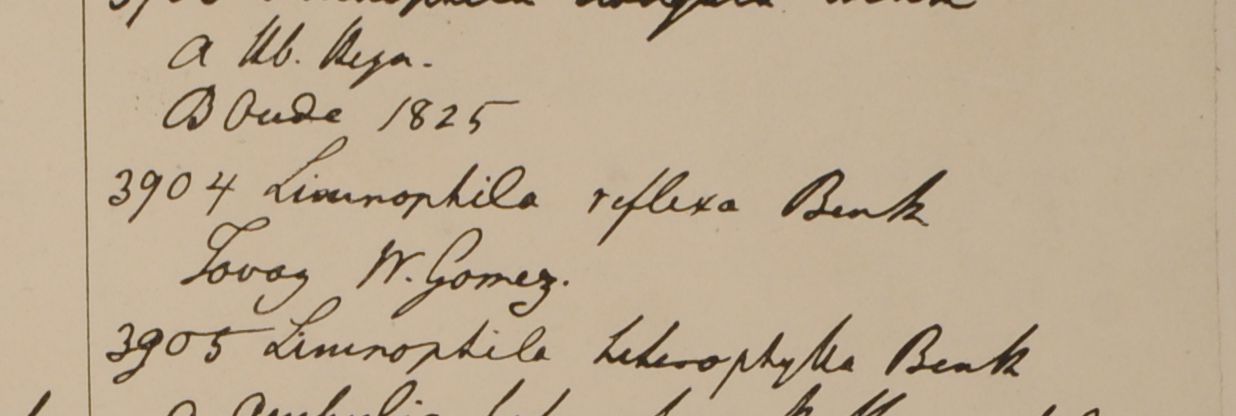 A Hb. Heyn.
B Oude 1825
3904 Limnophila reflexa Benth
Tovoy W. Gomez.
3905 Limnophila heterophylla Benth